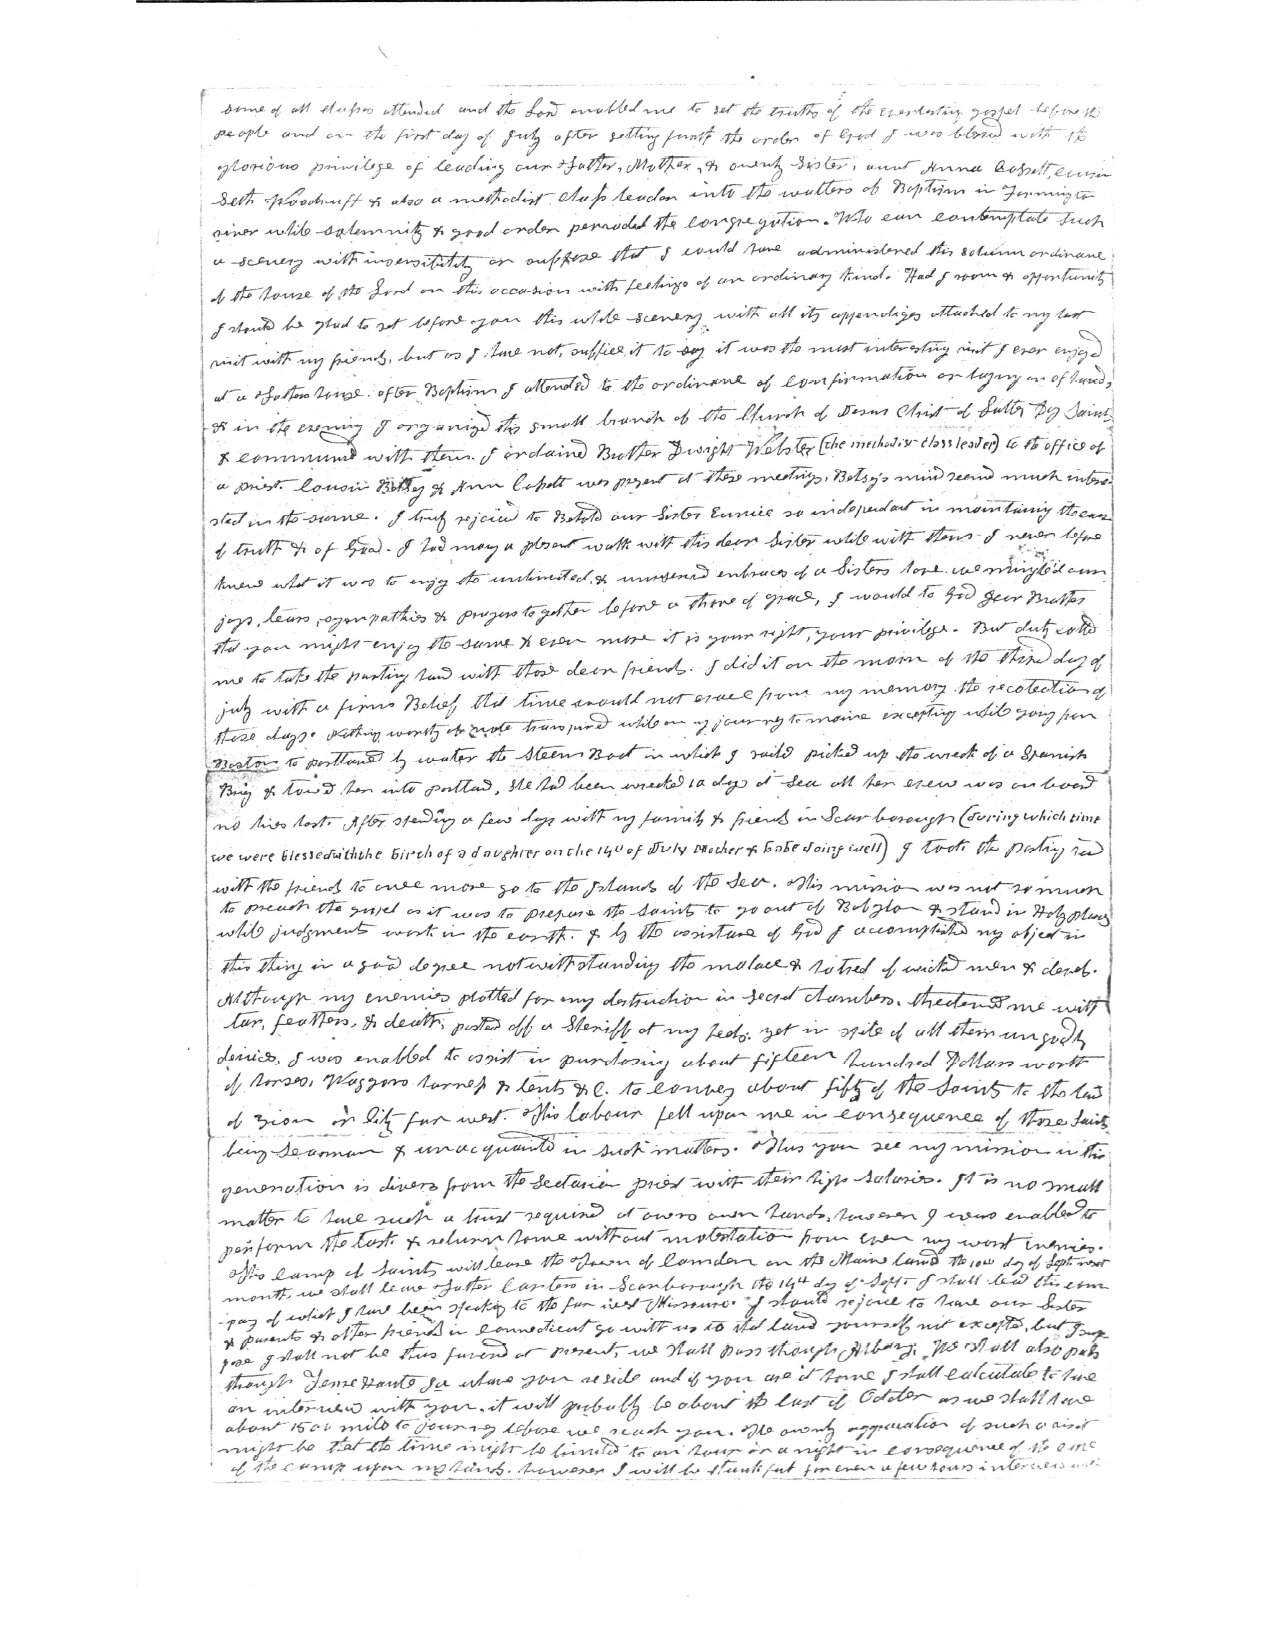 some of all classes attended and the Lord enabled me to set the truths of the everlasting gospel before the
people and on the first day of July after setting forth the order of God I was blessed with the
glorious privilege of leading our Father, Mother, & ownly Sister, aunt Anna Cossett, cousin
Seth Woodruff & also a methodist class leader into the watters of Baptism in Farmington
river while solemnity & good order pervaded the congregation. Who can contemplate such
a scenery with insensibility or suppose that I could have administered this solumn ordinance
of the house of the Lord on this occasion with feelings of an ordinary kind. Had I room & opportunity
I should be glad to set before you this whole scenery with all its appendiges attached to my last
visit with my friends, but as I have not, suffice it to say it was the most interesting visit I ever enjoyed
at a Fathers house. after Baptism I attended to the ordinance of confirmation or laying on of hands,
& in the evening I organized this small branch of the Church of Jesus Christ of Latter Day Saints
& communed with them. I ordained Brother Dwight Webster (the methodist class leader) to the office of
a priest. Cousin Betsey & Ann Cossett was present at these meetings, Betsey's mind seemd much intere-
sted in the same. I truly rejoiced to Behold our Sister Eunice so independant in maintaining the cause
of truth & of God. I had many a plesent walk with this dear Sister while with them. I never before
knew what it was to enjoy the unlimited, & unreserved embraces of a Sisters love. we mingled our
joys, tears, sympathies & prayers together before a throne of grace, I would to God Dear Brother
that you might enjoy the same & even more it is your right, your privilege. But duty called
me to take the parting hand with those dear friends. I did it on the morn of the third day of
july with a firm Belief that time would not erace from my memory the recolection of
those days. Nothing worthy of note transpired while on my journey to maine excepting while going from
Boston to portland by water the Steem Boat in which I saild picked up the wreck of a Spanish
Brig & towed her into portland, she had been wrecked 10 days at Sea all her crew was on board
no lives lost. After spending a few days with my family & friends in Scarborough (during which time
we were blessed with the birth of a daughter on the 14th of July Mother & babe doing well) I took the parting hand
with the friends to once more go to the Islands of the Sea. This mission was not so much
to preach the gospel as it was to prepare the Saints to go out of Babylon & stand in Holy places
while judgments work in the earth. & by the assistance of God I accomplished my object in
this thing in a good degree notwithstanding the malace & hatred of wicked men & devels.
Although my enemies plotted for my destruction in secret chambers, threatened me with
tar, feathers, & death, posted off a Sheriff at my heels, yet in spite of all their ungodly
devices, I was enabled to assist in purchasing about fifteen hundred Dollars worth
of horses, Waggons harness & tents &C. to convey about fifty of the Saints to the land
of Zion or City far west. This labour fell upon me in consequence of those Saints
being Seamen & unacquainted in such matters. Thus you see my mission in this
generation is divers from the Sectarian priest with their high salaries. It is no small
matter to have such a trust required at owrs own hands, however I was enabled to
perform the task & return home without molestation from even my worst enemies.
This camp of Saints will leave the Town of Camden on the Maine land the 10th day of Sept next
month, we shall leave Father Carters in Scarborough the 14th day of Sept. I shall lead this com-
pany of which I have been speaking to the far west Missouri. I should rejoice to have our Sister
& parents & other friends in Connecticut go with us to that land yourself not excepted, but I sup-
pose I shall not be thus favored at present, we shall pass through Albany, We shall also pass
through Terre Haute Ia where you reside and if you are at home I shall calculate to have
an interview with you, it will probably be about the last of October as we shall have
about 1500 mild to journey before we reach you. The ownly aggravation of such a visit
might be that the time might be limited to an hour or a night in consequence of the care
of the camp upon my hands. however I will be thankful for even a few hours interview with